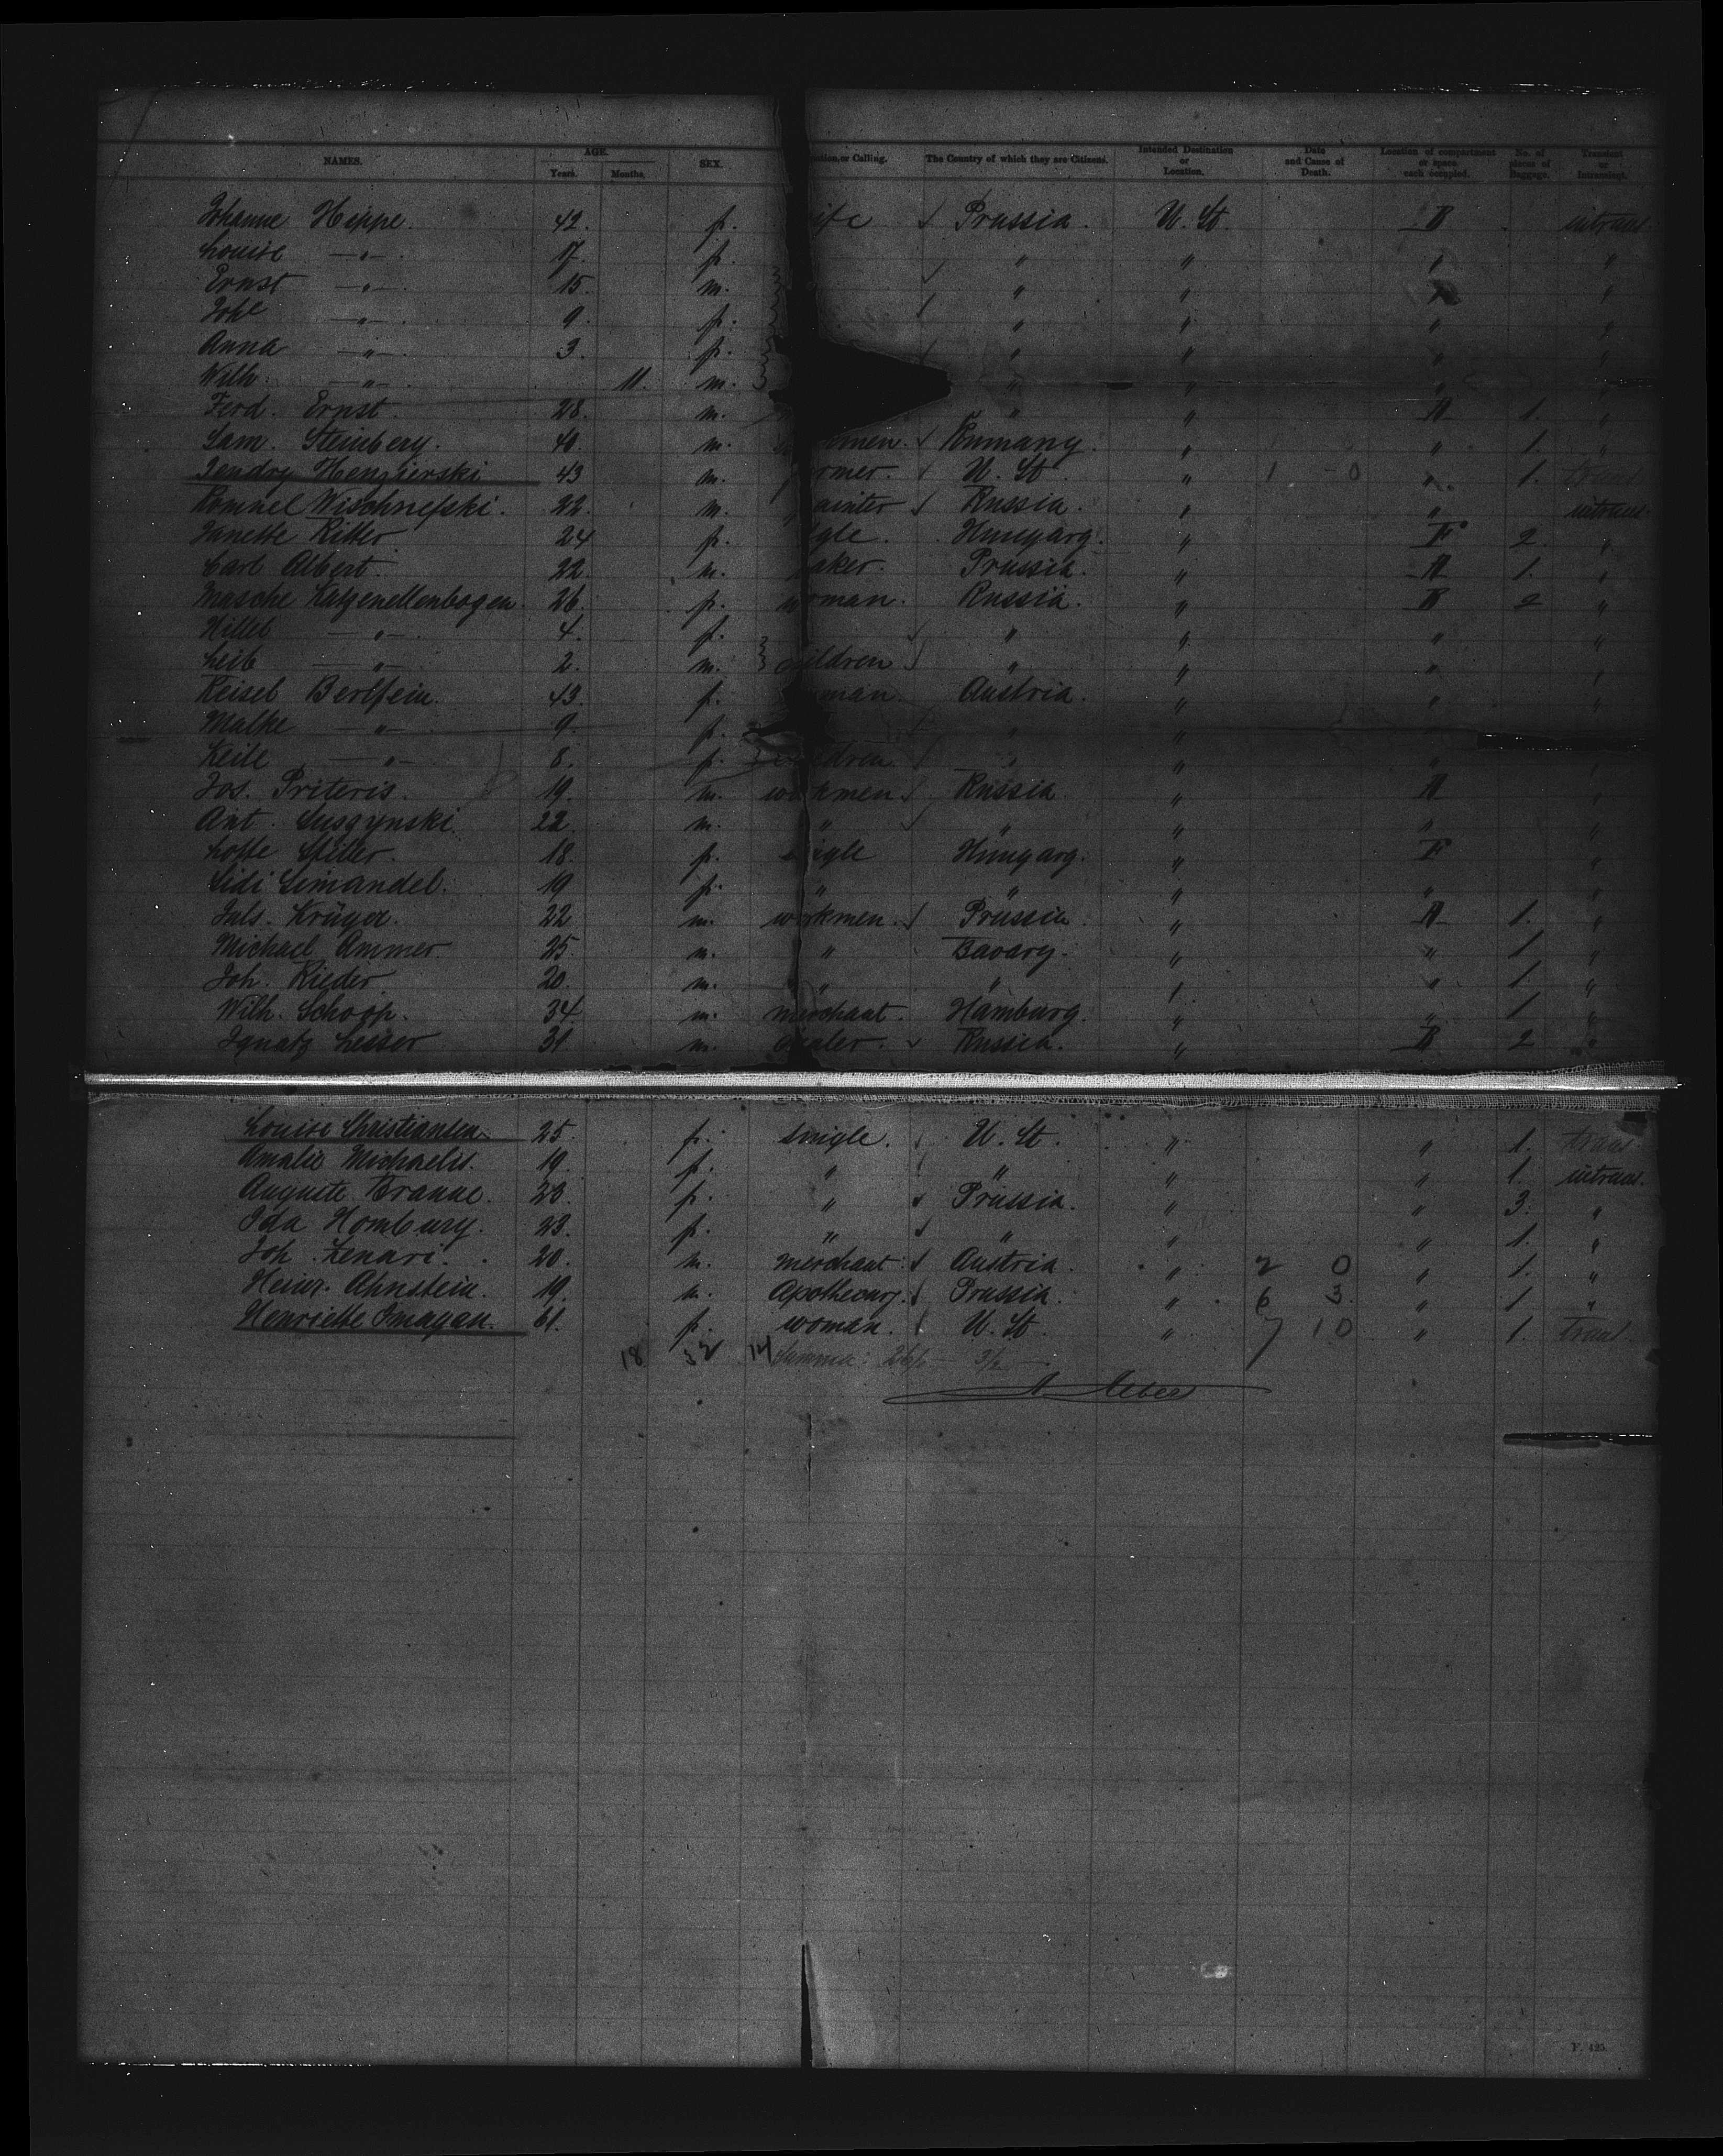 NAMES. AGE. Years. Months. SEX. ation, or Calling. The Country of which they are Citizens. Intended Destination or Location. Date and Cause of Death. Location of compartment or space each occupied. No. of pieces of Baggage. Transient or Intransient.
Johanne Hippe. 42. f. ife Prussia. U. St. B intrans
Louise —"— 17. f. " " " "
Ernst —"— 15. m. " " "
Joh —"— 9. f. " " " "
Anna —"— 3. f. " " " "
Wilh. —"— 11. m. " " "
Ferd. Ernst. 28. m. " " A 1. "
Sam. Steinberg. 40. m. men. Rumany. " " 1. "
Hengierski 43 m. rmer. U. St. " 1 - 0 " 1.
Wischnefski. 22. m. ainter Russia. " " intrans
Janette Ritter 24 f. gle. Hungarg. " F 2. "
Carl Albert. 22. m. aker. Prussia. " A 1. "
Masche Katzenellenbogen. 26. f. woman. Russia. " B 2 "
Hillel —"— 4. f. " " " "
Leib —"— 2. m. children " " " "
Reisel Berlfein. 43. f. woman. Austria. " " "
Malke —"— 9. f. " "
Keile —"— 8. f. children " " "
Jos. Priteris. 19. m. workmen Russia " A "
Ant. Susgynski. 22. m. " " " " "
Lotte Stiller. 18. f. single Hungarg. " F "
Sidi Simandel. 19 f. " " " " "
Juls. Krüger. 22 m. workmen. Prussia " A 1. "
Michael Ammer 25. m. " Bavarg. " " 1. "
Joh. Rieder. 20. m. " " " " 1. "
Wilh. Schoop. 34. m. merchant. Hamburg. " " 1 "
Ignatz Lesser 31 m. dealer. Russia. " B 2 "
Louise Christiansen 25. f. single. U. St. " " 1. trans
Amalie Michaelis. 19. f. " " " " 1. intrans.
Auguste Branne. 20. f. " Prussia. " " 3. "
Ida Homburg. 23. f. " " " " 1. "
Joh. Zenari. 20. m. merchant. Austria. " 2 0 " 1. "
Heinr. Ahnstein. 19. m. Apothecary. Prussia. " 6 3. " 1 "
Henriette Imagan. 61. f. woman. U. St. " 7 10 " 1. trans.
18 32 14 Summa: 26½ — 3/2 —
F. 425.